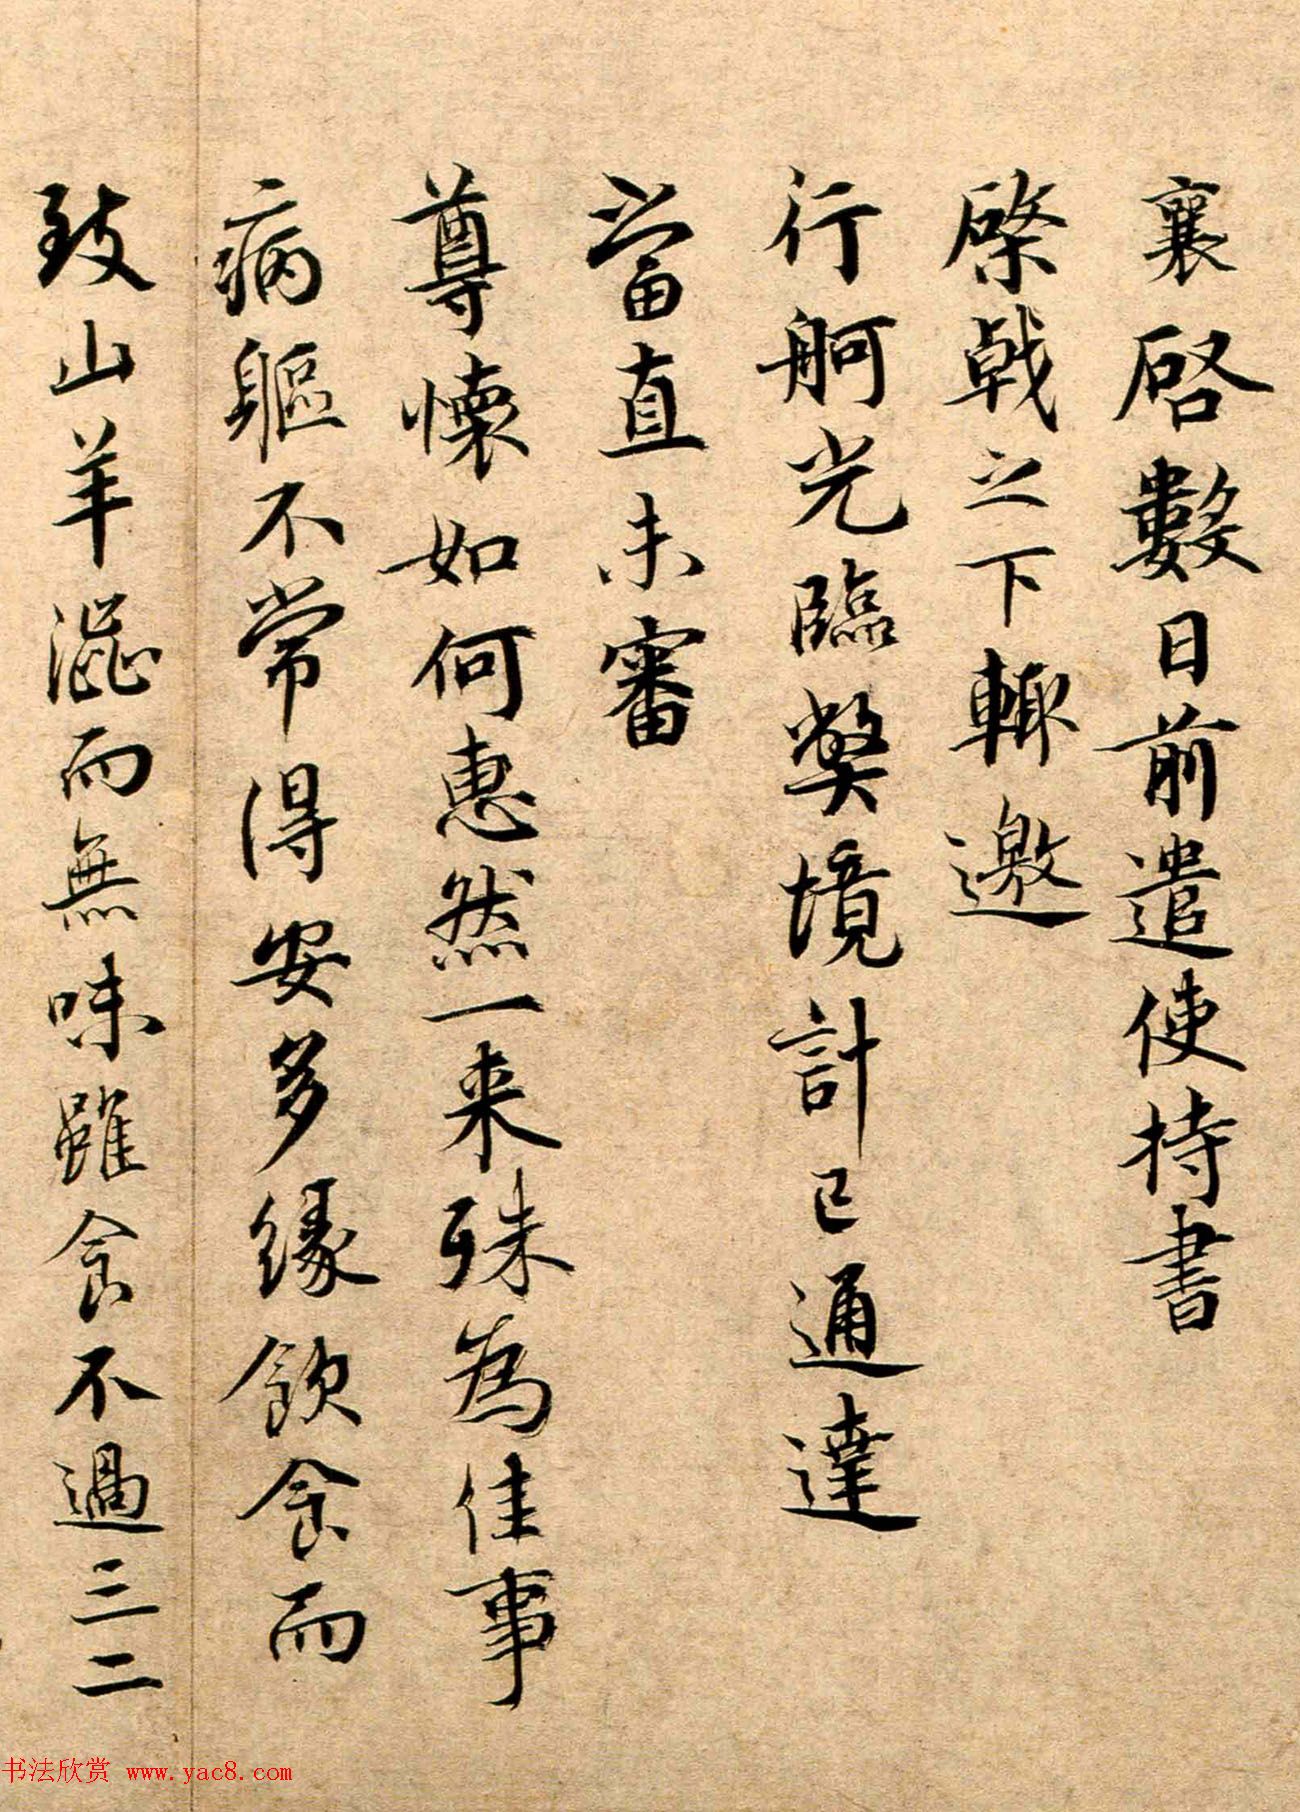 襄啓數日前遣使持書
棨戟之下輙邀
行舸光臨弊境計已通達
當直未審
尊懷如何惠然一来殊為佳事
病軀不常得安多緣飲食而
致山羊澀而無味雖食不過三二
书法欣赏 www.yac8.com